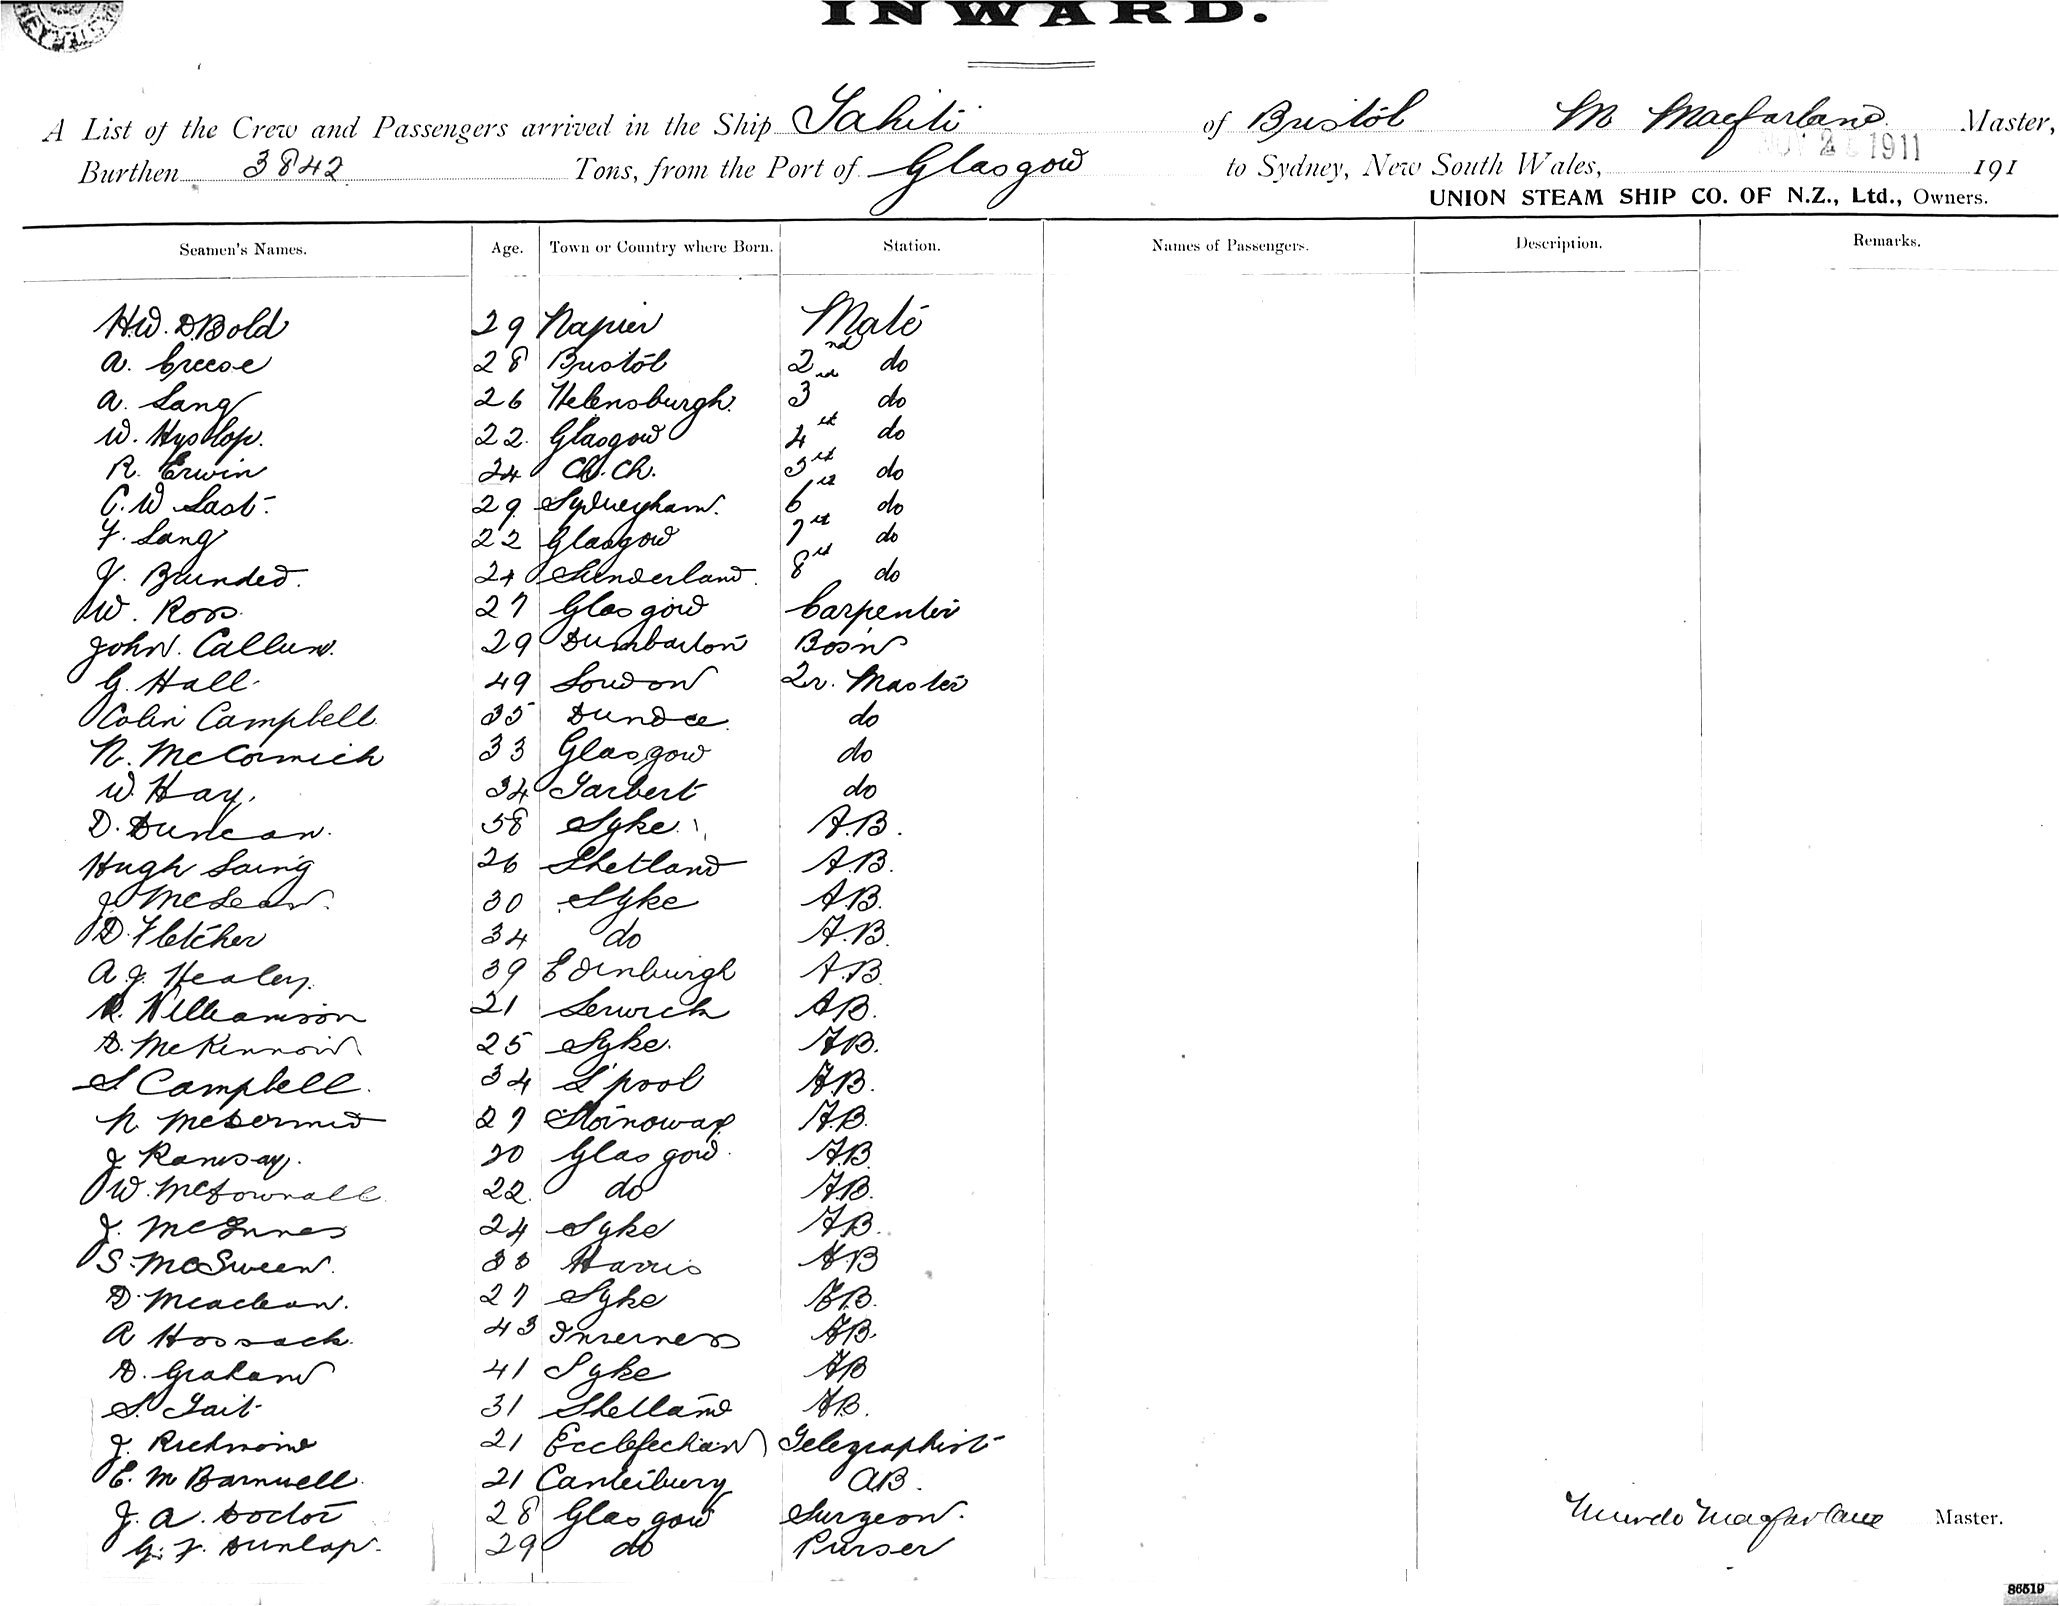 INWARD.
A List of the Crew and Passengers arrived in the Ship Tahiti of Bristol M Macfarlane Master,
Burthen 3842 Tons, from the Port of Glasgow to Sydney, New South Wales, NOV 1911 191
UNION STEAM SHIP CO. OF N.Z., Ltd., Owners.
Seamen's Names. Age. Town or Country where Born. Station. Names of Passengers. Description. Remarks.
H.W. D. Bold 29 Napier Mate
A. Creese 28 Bristol 2nd do
A. Lang 26 Helensburgh. 3rd do
W. Hyslop. 22. Glasgow 4th do
R. Erwin 24 Ch. Ch. 5th do
C. W Last. 29. Sydneyham. 6th do
F. Lang 22 Glasgow 7th do
J. Brunded. 24 Sunderland. 8th do
W. Ross. 27 Glasgow Carpenter
John. Callum. 29 Dumbarton Bosn
G. Hall. 49 London Qr. Master
Colin Campbell 35 Dundee. do
N. McCormick 33 Glasgow do
W. Hay. 34 Tarbert do
D. Duncan. 58 Syke. A.B.
Hugh Laing 26 Shetland A.B.
J McLean. 30 Syke A.B.
D. Fletcher 34 do A.B.
A. J. Healey. 39 Edinburgh A.B.
Williamson 21 Lerwick AB.
D. McKinnon 25 Syke. AB.
S Campbell. 34 L'pool AB.
N. McDermid 27 Stornoway. A.B.
J Ramsay. 20 Glasgow. A.B.
W. McDownall 22. do A.B.
J. McInnes 24 Syke A.B.
S. McSween. 33 Harris AB
D. Mcaclean. 27 Syke A.B.
A Hossack. 43 Inverness AB.
D. Graham 41 Syke AB
S. Tait 31 Shetland AB.
J. Richmond 21 Ecclefechan Telegraphist
E. M Barnwell. 21 Canterbury AB.
J. A. Doctor 28 Glasgow Surgeon.
G. F. Dunlop. 29 do Purser
Murdo Macfarlane Master.
86519